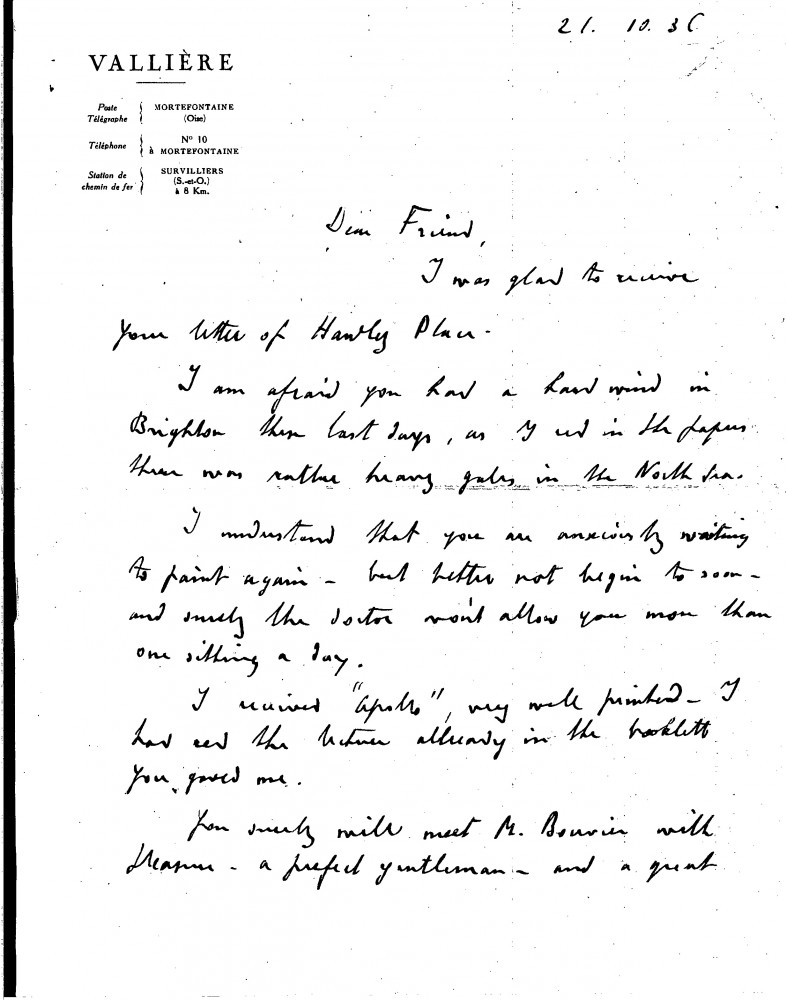 21. 10. 36
VALLIÈRE
Poste Télégraphe { MORTEFONTAINE (Oise)
Téléphone { Nº 10 à MORTEFONTAINE
Station de chemin de fer } SURVILLIERS (S.-et-O.) à 8 Km.
Dear Friend,
I was glad to receive
your letter of Hawley Place.
I am afraid you had a hard wind in
Brighton these last days, as I red in the papers
there was rather heavy gales in the North Sea.
I understand that you are anxiously waiting
to paint again - but better not begin to soon -
and surely the doctor won't allow you more than
one sitting a day.
I received "Apollo", very well printed - I
had red the lecture allready in the booklett
you gaved me.
You surely will meet M. Bouvier with
pleasure - a prefect gentleman - and a great